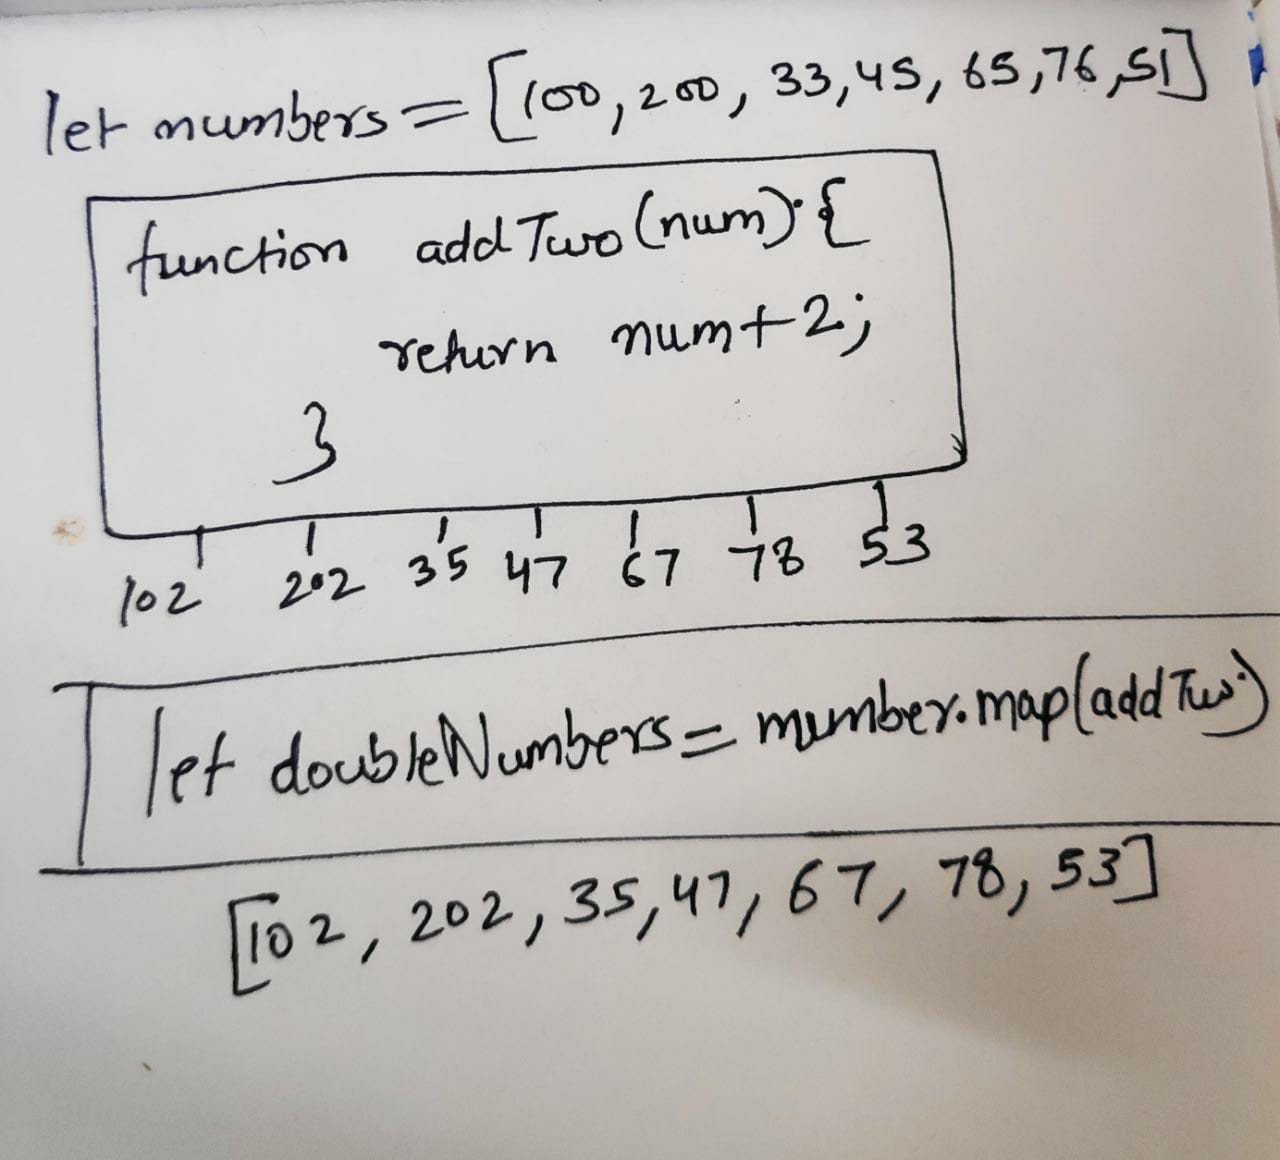 let numbers = [100, 200, 33, 45, 65, 76, 51]
function addTwo (num) {
return num+2;
}
102 202 35 47 67 78 53
let doubleNumbers = number.map(addTwo)
[102, 202, 35, 47, 67, 78, 53]